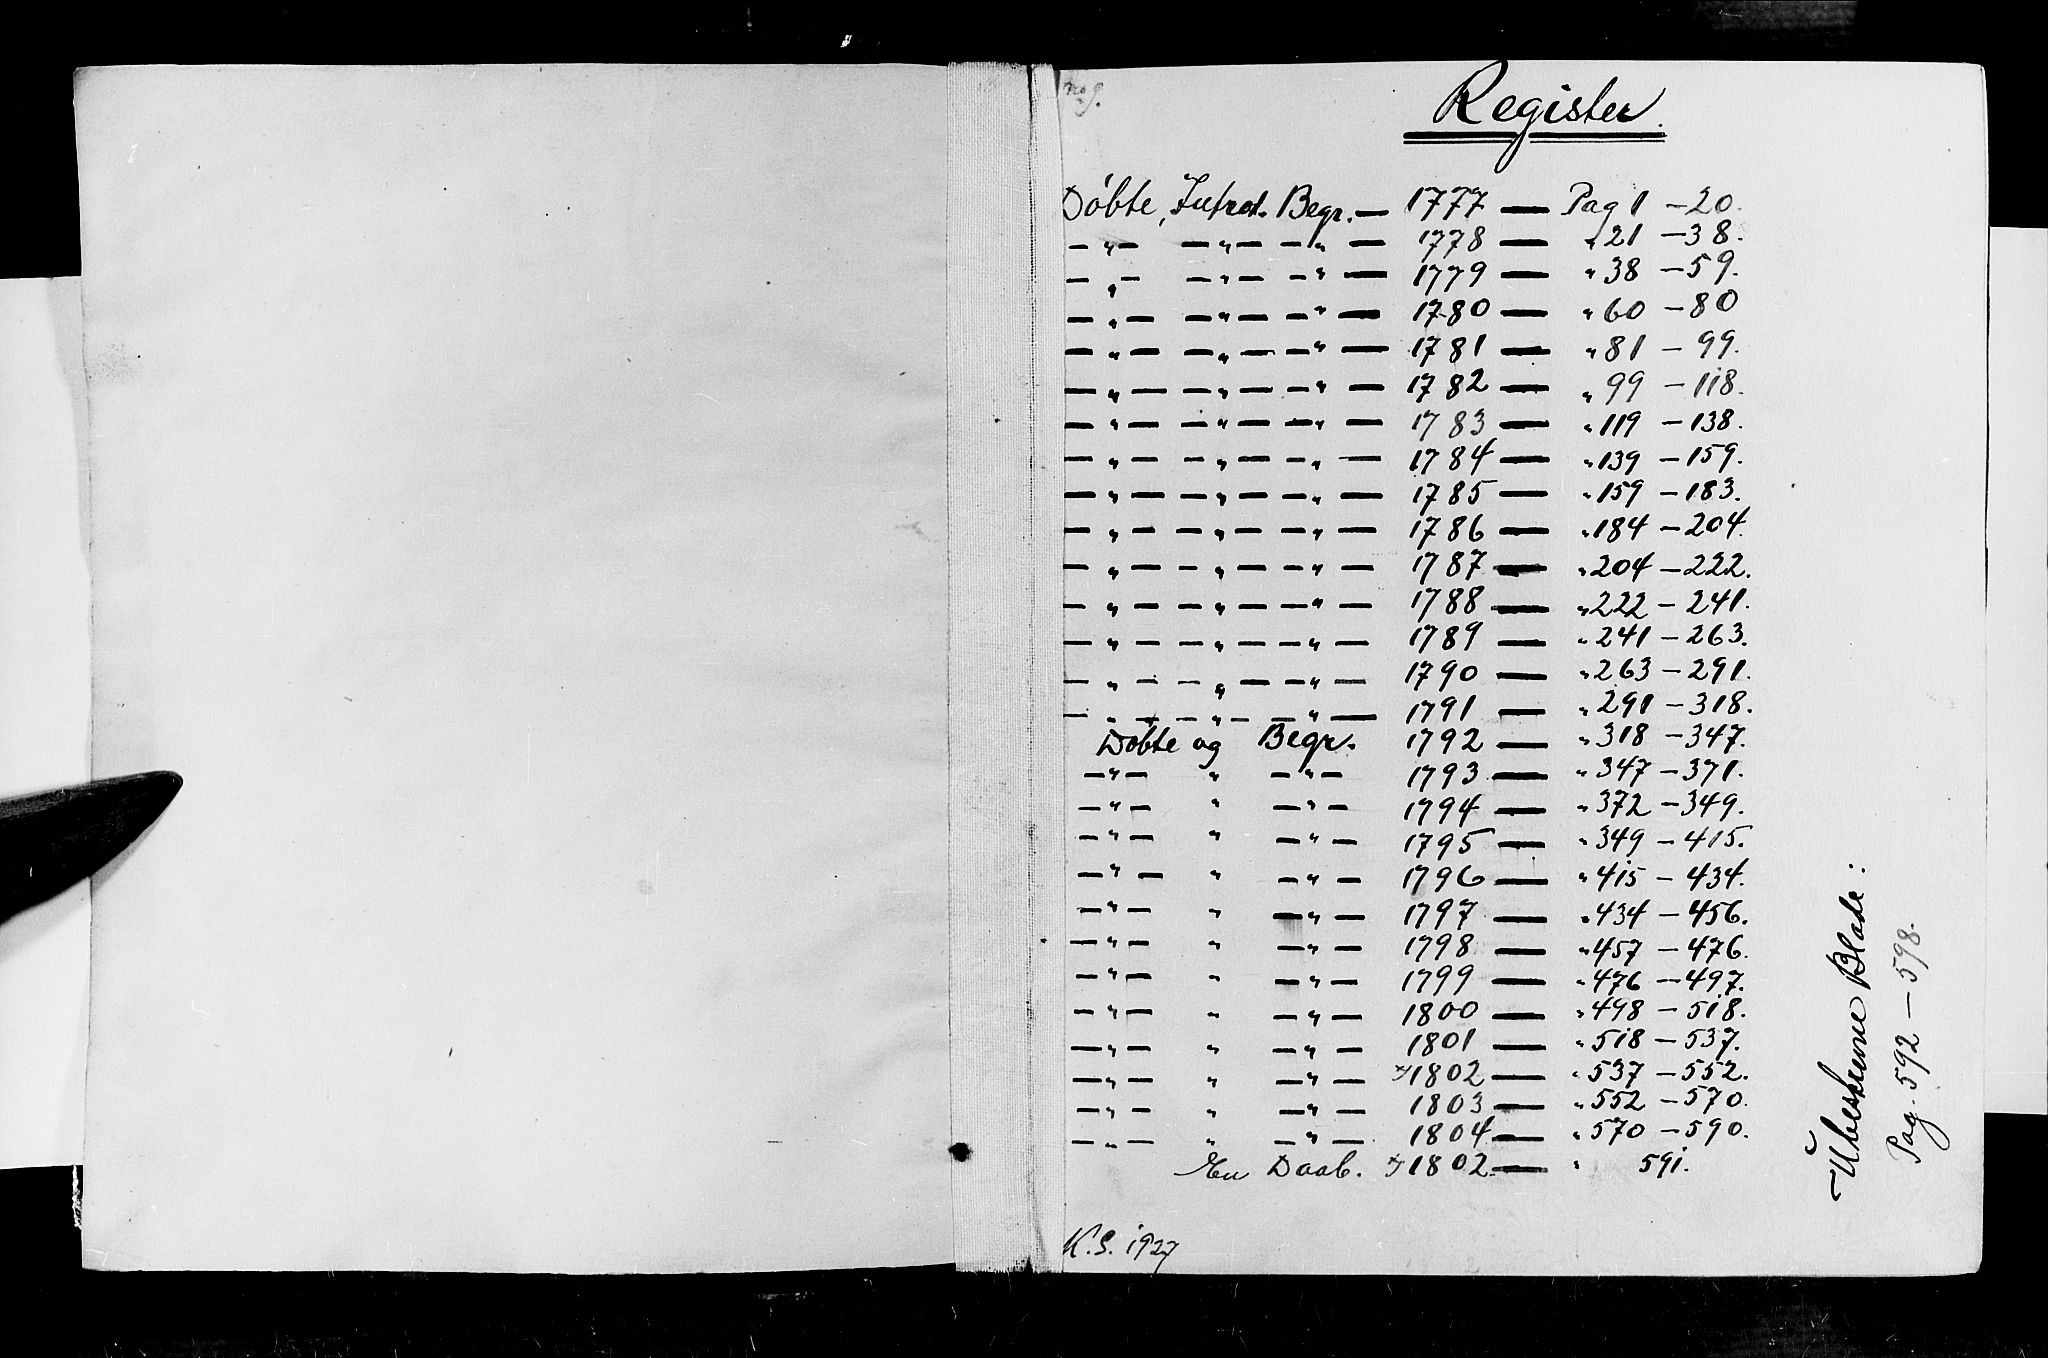 No 9.
Register.
Döbte, Introd. Begr. — 1777 — Pag 1 - 20.
— " — — " — — " — 1778 — " 21 - 38.
— " — — " — — " — 1779 — " 38 - 59.
— " — — " — — " — 1780 — " 60 - 80
— " — — " — — " — 1781 — " 81 - 99.
— " — — " — — " — 1782 — " 99 - 118.
— " — — " — — " — 1783 — " 119 - 138.
— " — — " — — " — 1784 — " 139 - 159.
— " — — " — — " — 1785 — " 159 - 183.
— " — — " — — " — 1786 — " 184 - 204.
— " — — " — — " — 1787 — " 204 - 222.
— " — — " — — " — 1788 — " 222 - 241.
— " — — " — — " — 1789 — " 241 - 263.
— " — — " — — " — 1790 — " 263 - 291.
— " — — " — — " — 1791 — " 291 - 318.
Döbte og Begr. 1792 — " 318 - 347.
— " — " — " — 1793 — " 347 - 371.
— " — " — " — 1794 — " 372 - 349.
— " — " — " — 1795 — " 349 - 415.
— " — " — " — 1796 — " 415 - 434.
— " — " — " — 1797 — " 434 - 456.
— " — " — " — 1798 — " 457 - 476.
— " — " — " — 1799 — " 476 - 497.
— " — " — " — 1800 — " 498 - 518.
— " — " — " — 1801 — " 518 - 537.
— " — " — " — 1802 — " 537 - 552.
— " — " — " — 1803 — " 552 - 570.
— " — " — " — 1804 — " 570 - 590.
En Daab. 1802 — " 591.
K.S. 1927
Ubeskrevne Blade:
Pag. 592 — 598.